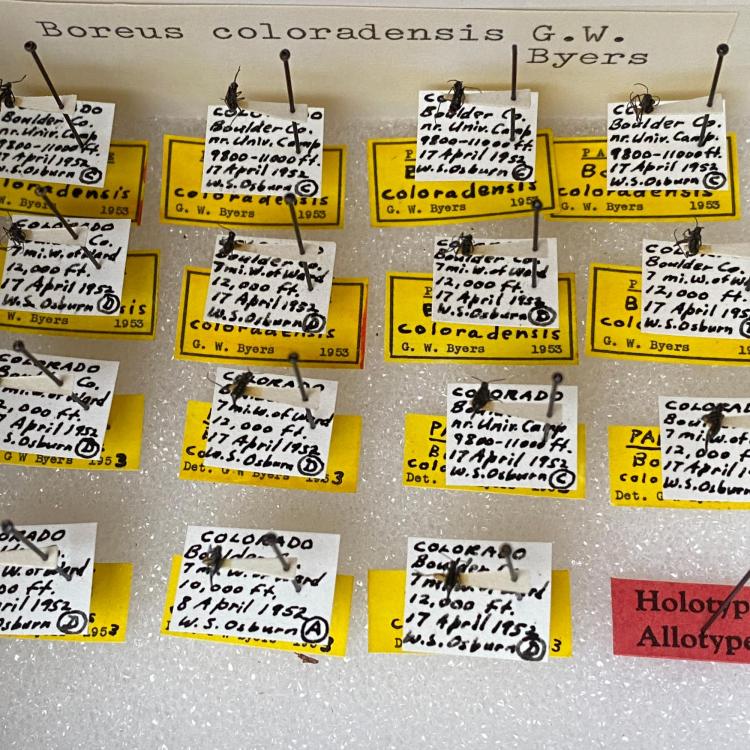 Boreus coloradensis G.W.
Byers
Boulder Co.
nr. Univ. Camp
9800-11000 ft.
17 April 1952
W.S. Osburn C
coloradensis
G. W. Byers 1953
Boulder Co.
nr. Univ. Camp
9800-11000 ft.
17 April 1952
W.S. Osburn C
coloradensis
G. W. Byers 1953
Boulder Co.
nr. Univ. Camp
9800-11000 ft.
17 April 1952
W.S. Osburn C
coloradensis
G. W. Byers 1953
Boulder Co.
nr. Univ. Camp.
9800-11000 ft.
17 April 1952
W.S. Osburn C
coloradensis
G. W. Byers 1953
COLORADO
Co.
7 mi. W. of Ward
12,000 ft.
17 April 1952
W. S. Osburn D
W. Byers 1953
Boulder Co.
7 mi. W. of Ward
12,000 ft.
17 April 1952
W.S. Osburn D
coloradensis
G. W. Byers 1953
Boulder Co.
7 mi. W. of Ward
12,000 ft.
17 April 1952
W.S. Osburn D
coloradensis
G. W. Byers 1953
COLO
Boulder Co.
7 mi. W. of W
12,000 ft.
17 April 195
W.S. Osburn
G. W. Byers 1953
COLORADO
Co.
of Ward
,000 ft.
17 April 1952
S. Osburn D
G W Byers 1953
COLORADO
7 mi. W. of Ward
12,000 ft.
17 April 1952
W.S. Osburn D
Det. G W Byers
COLORADO
nr. Univ. Camp
9800-11000 ft.
17 April 1952
W.S. Osburn C
Det.
COLORA
7 mi. W. of
12,000 f
17 April 1
W.S. Osbur
Det. G
W. of Ward
00 ft.
ril 1952
sburn D
953
COLORADO
Boulder Co.
7 mi. W. of Ward
10,000 ft.
8 April 1952
W.S. Osburn A
COLORADO
7 mi. W. of Ward
12,000 ft.
17 April 1952
W.S. Osburn D
Holotyp
Allotype